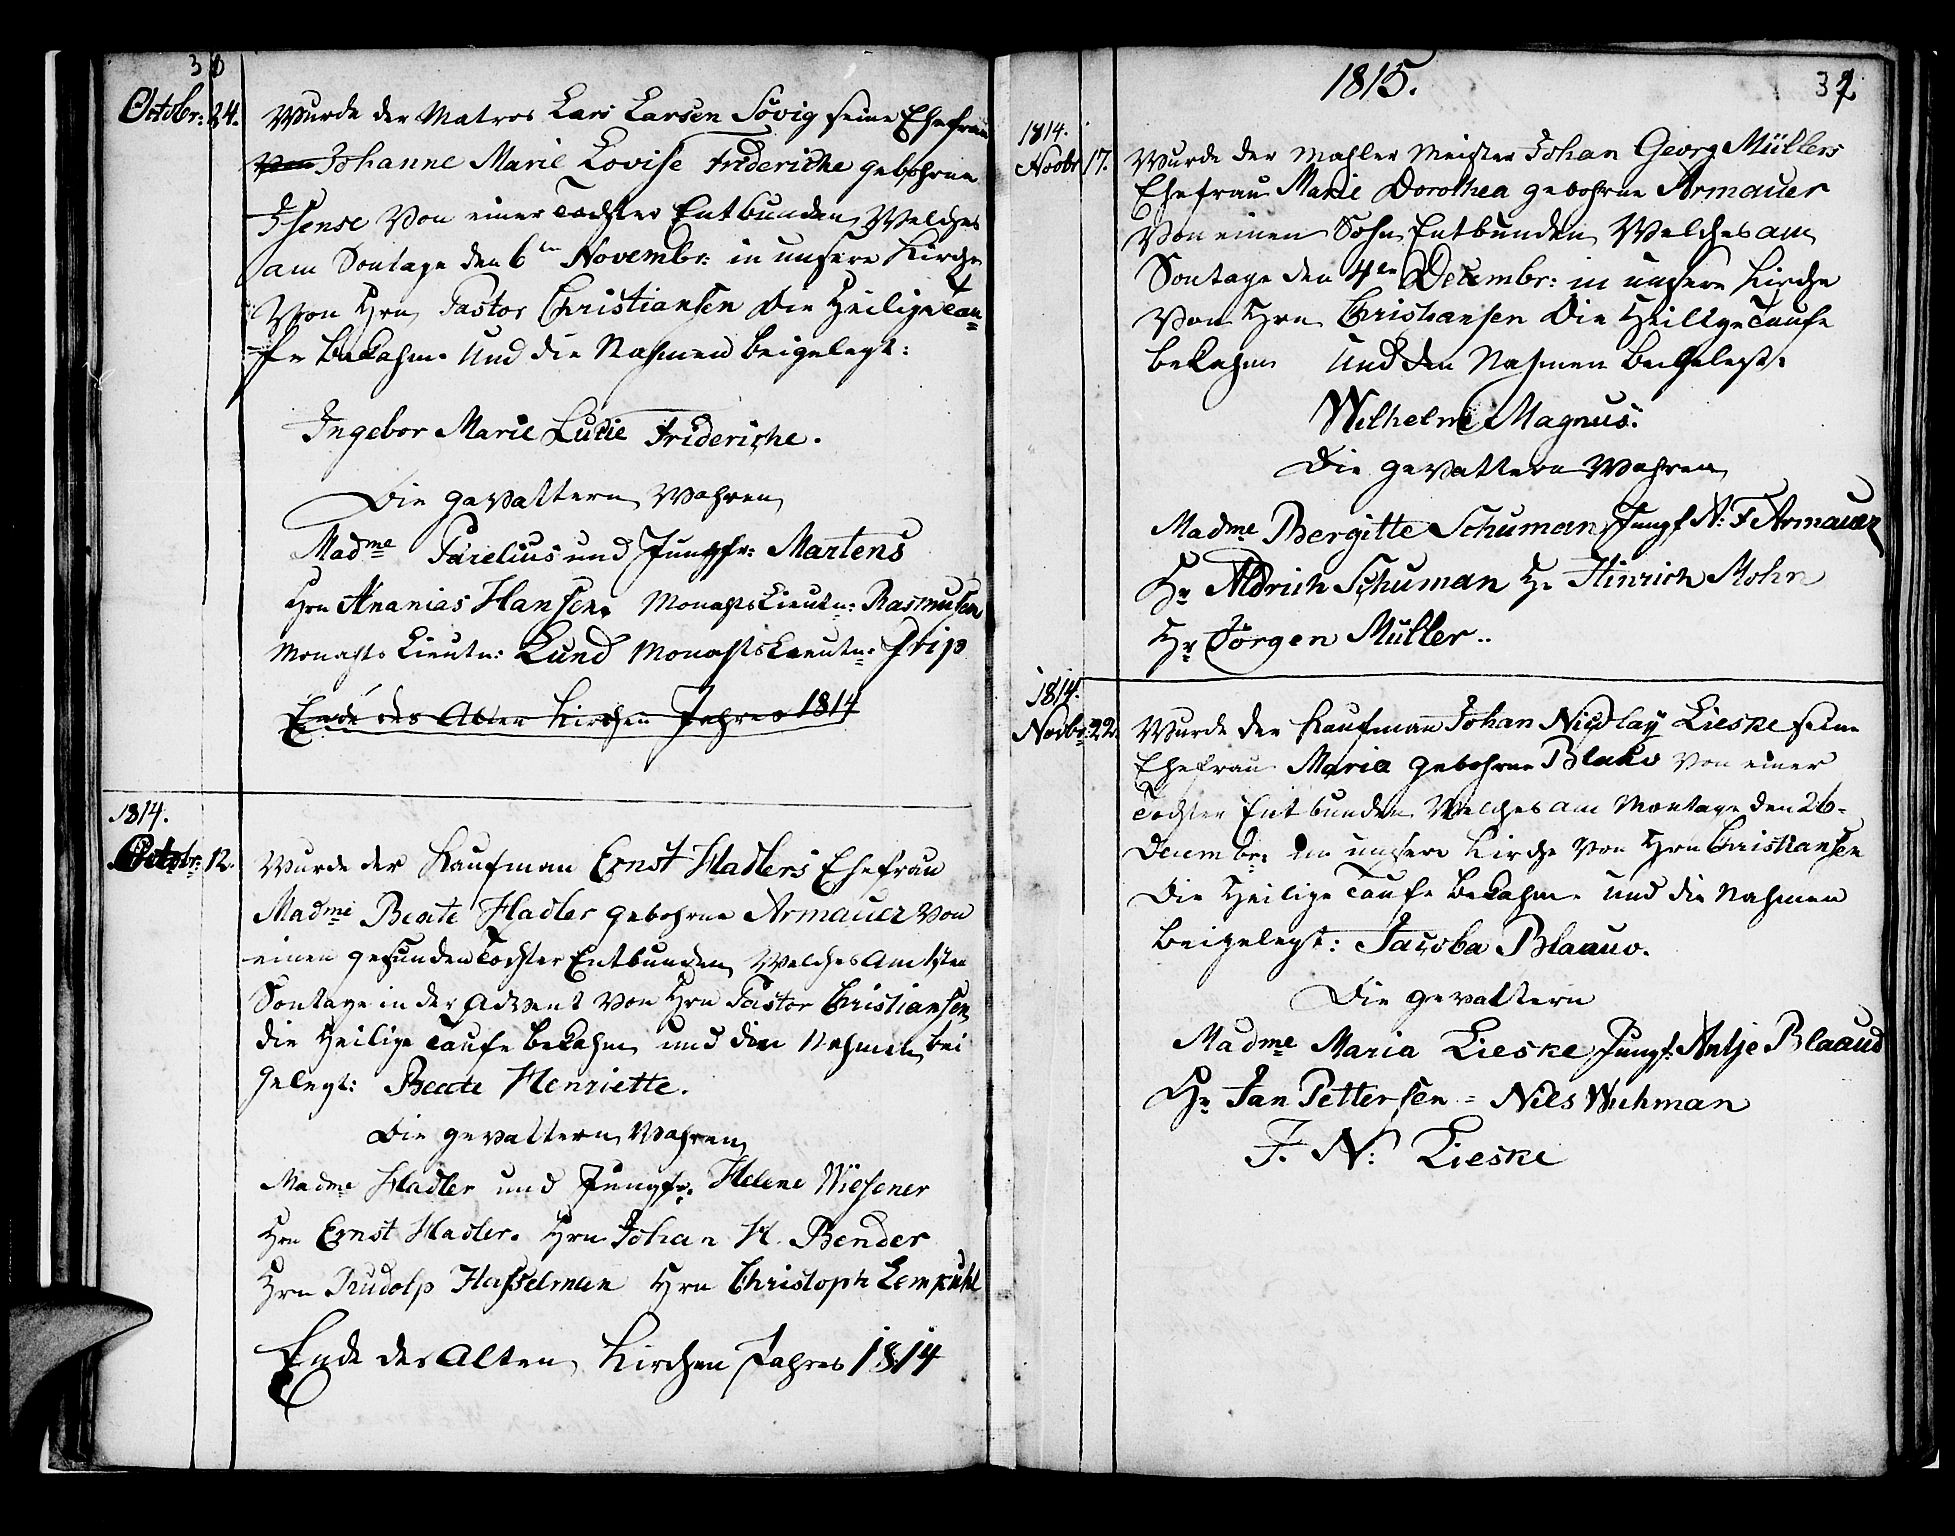 38
Octobr: 24. Wurde der Matros Lars Larsen Sövig seine Ehefrau
Johanne Marie Lovise Fridericke gebohrne
Isense Von einer Tochter Entbunden, Welches
am Sontage den 6ten Novembr: in unsere Kirche
Von Hrn Pastor Christiansen Die Heilige Tau=
fe bekahm. Und die Nahmen beigelegt:
Ingebor Marie Lucie Frideriche.
Die gevattern Wahren
Madme Parelius und Jungfr: Martens
Hrn Ananias Hansen. Monahts Lieutn: Rasmusen
Monahts Lieutn: Lund Monahts Lieutn: Friis
Ende des Alten Kirchen Jahres 1814
1814.
Octobr: 12. Wurde der Kaufman Ernst Hadlers Ehefrau
Madme Beate Hadler gebohrne Armauer Von
einen gesunden Tochter Entbunden, Welches Am 1sten
Sontage in der Advent Von Hrn Pastor Christiansen
die Heilige Taufe bekahm und die Nahmen bei
gelegt: Beate Henriette.
Die gevattern Wahren
Madme Hadler und Jungfr. Helene Wiesener
Hrn Ernst Hadler. Hrn Johan H. Bender
Hrn Rudolp Hasselman Hrn Christoph Lempuhl
Ende des Alten Kirchen Jahres 1814
1815.
1814.
Novbr 17. Wurde der Mahler Meister Johan Georg Müllers
Ehefrau Marie Dorothea gebohrne Armauer
Von einen Sohn Entbunden, Welches am
Sontage den 4ten Decembr: in unsere Kirche
Von Hrn Christiansen Die Heilige Taufe
bekahm Und den Nahmen beigelegt:
Wilhelm Magnus.
Die gevattern Wahren
Madme Bergitte Schuman, Jungf. A: F Armauer
Hr Aldrich Schuman Hr Hinrich Mohn
Hr Jörgen Müller..
1814.
Novbr: 22. Wurde der Kaufmann Johan Nicolay Lieske seine
Ehefrau Maria gebohrne Blauw Von einer
Tochter Entbunden Welches am Montage den 26=
Decembr: in unsere Kirche Von Hrn Christiansen
Die Heilige Taufe bekahm. Und die Nahmen
beigelegt: Jacoba Blaauw.
Die gevattern
Madme Maria Lieske, Jungf: Antje Blaauw
Hr Jan Pettersen = Nils Wichman
J. N: Lieske